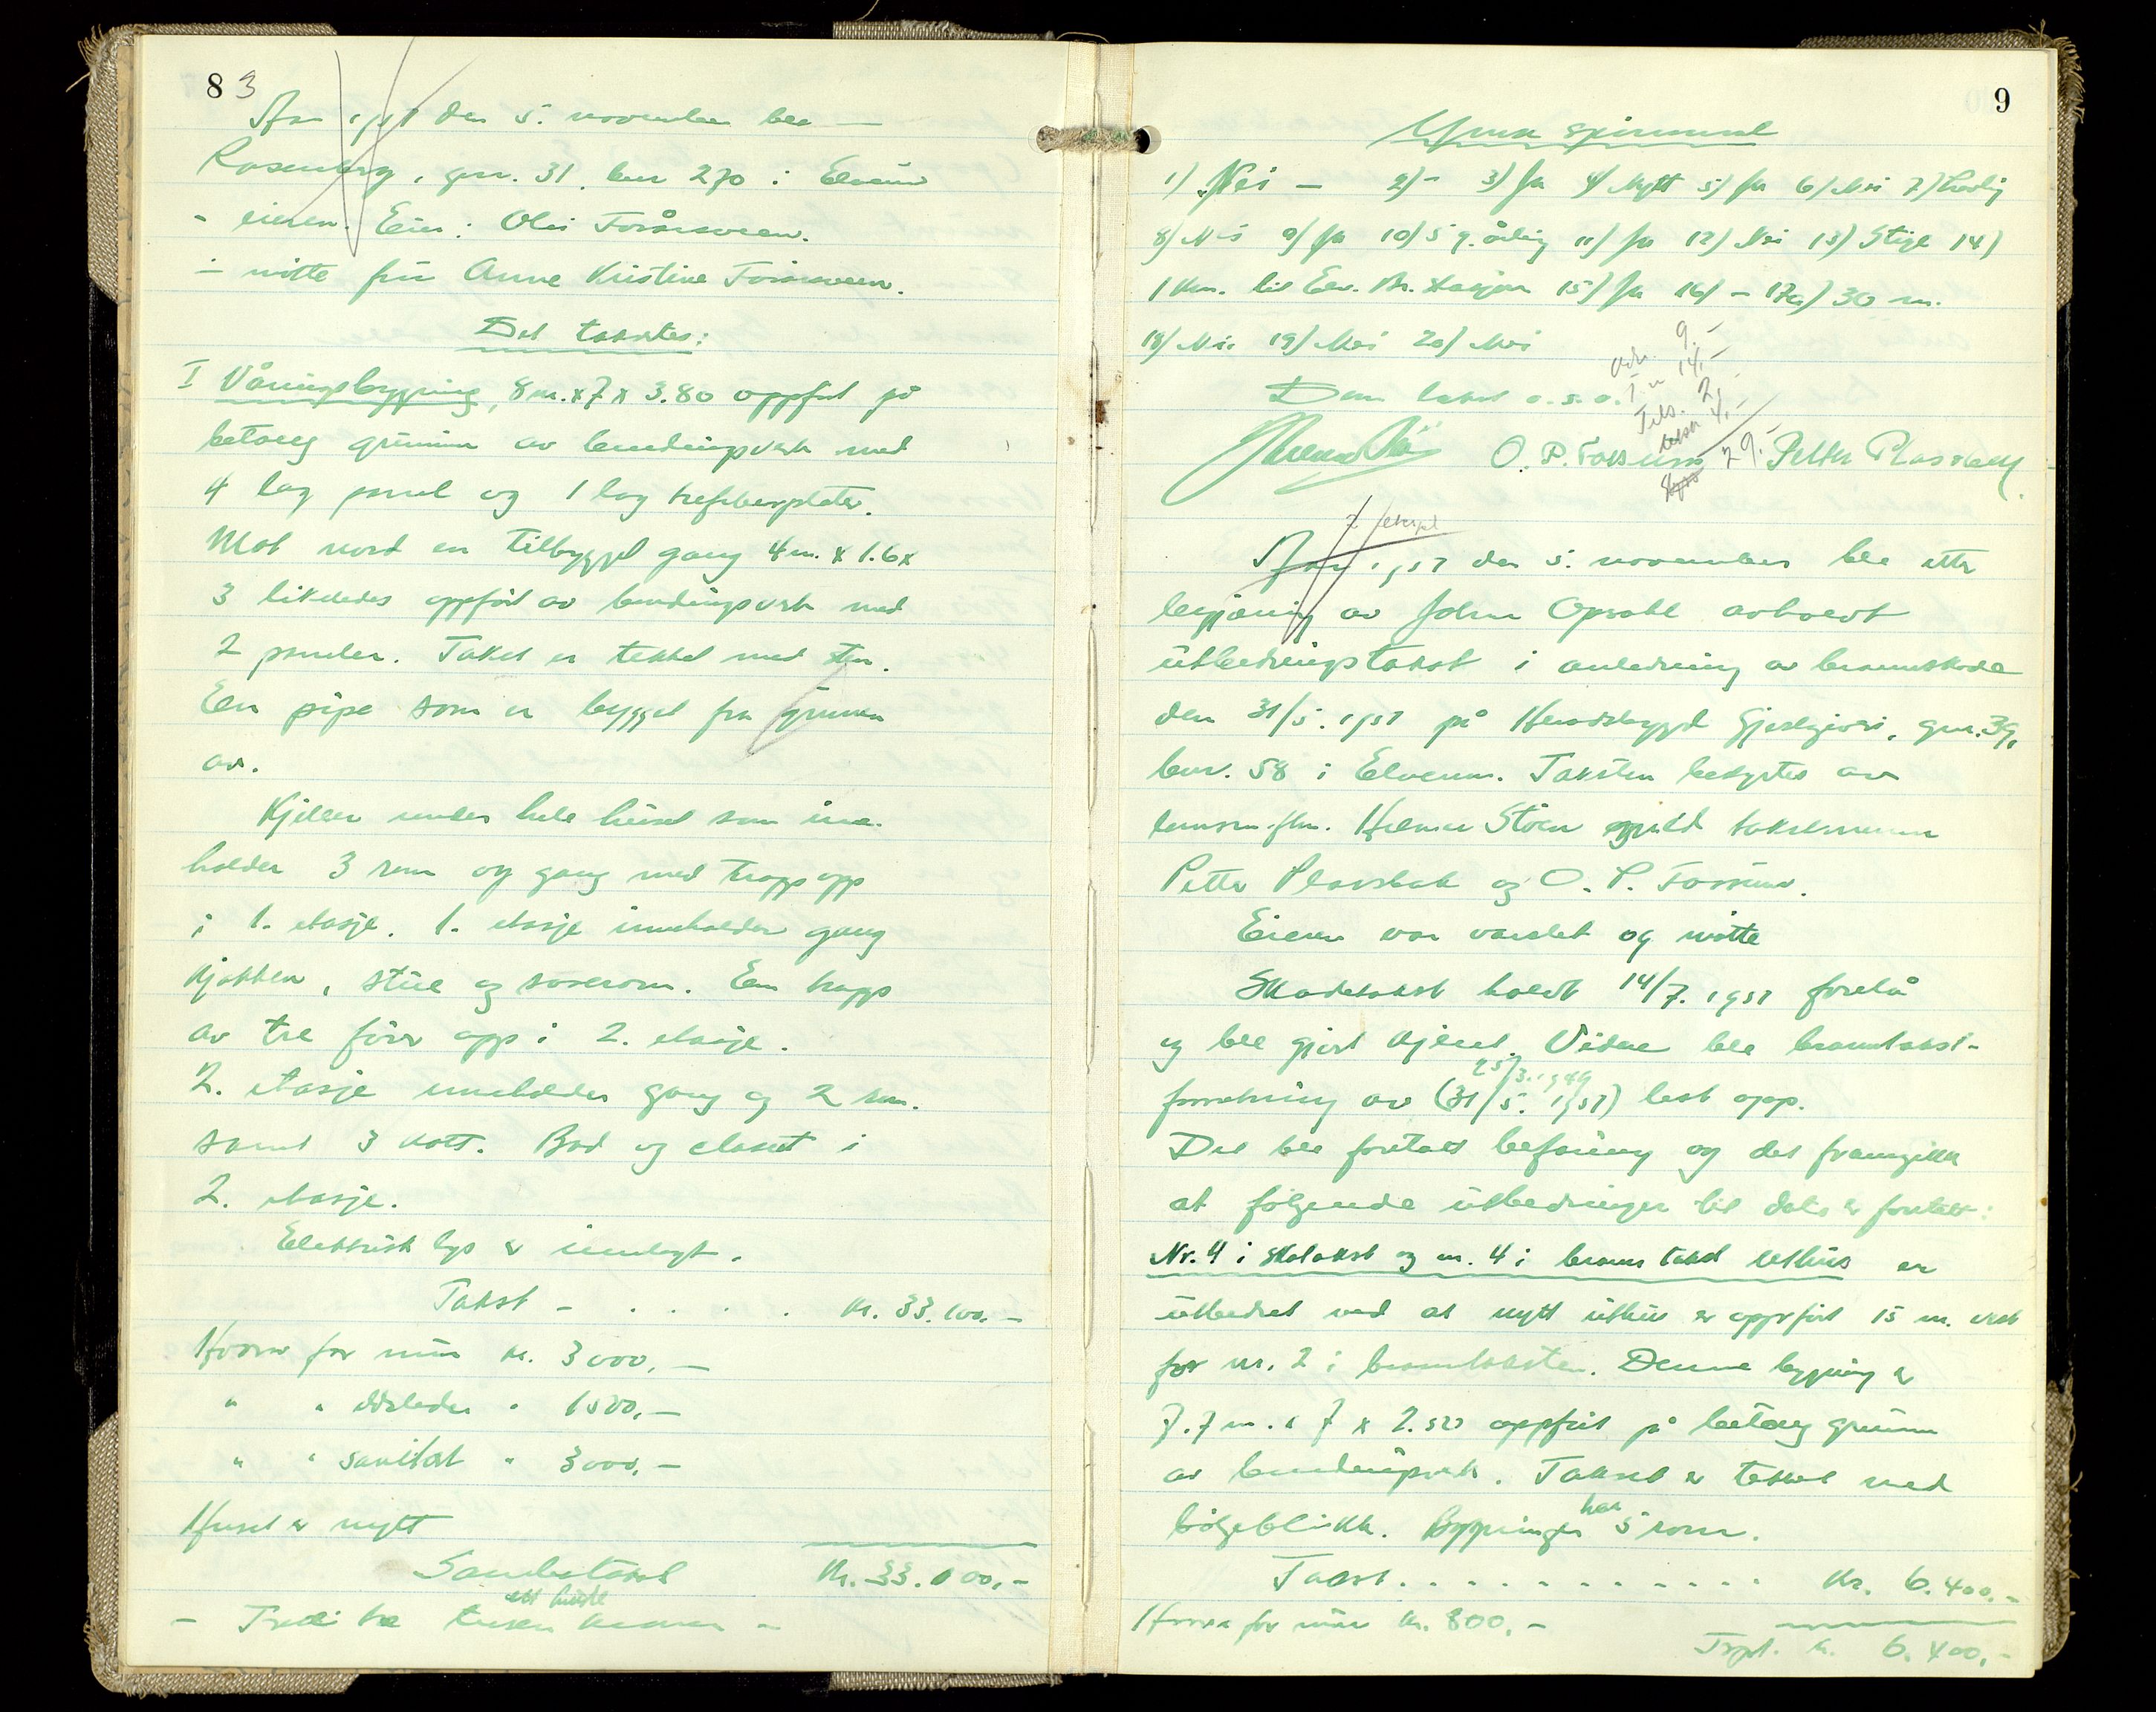 8 3
År 1951 den 5. november ble —
Rosenberg, gnr. 31, bnr 270 i Elverum
- eieren. Eier: Olei Foråsveen.
- møtte fru Anne Kristine Foråsveen.
Det takstes:
I Våningsbygning, 8 m. x 7 x 3.80 oppført på
betong grunnmur av bendingsverk med
4 lag panel og 1 lag trefiberplater.
Mot nord en tilbygget gang 4 m. x 1.6 x
3 likeledes oppført av bendingsverk med
2 paneler. Taket er tekket med sten.
En pipe som er bygget fra grunnen
av.
Kjeller under hele huset som inne-
holder 3 rom og gang med trapp opp
i 1. etasje. 1. etasje inneholder gang
kjøkken, stue og soverom. En trapp
av tre fører opp i 2. etasje.
2. etasje inneholder gang og 2 rom.
samt 3 kott. Bad og closett i
2. etasje.
Elektrisk lys er innlagt.
Takst - . . . . kr. 33.100.-
Hvorav for mur kr. 3000,-
" " ildsteder " 1500,-
" " sanitært " 3000,-
Huset er nytt
Samletakst kr. 33.100,-
ett hundre
- Tretti tre tusen kroner -
9
Ymse spørsmål
1) Nei - 2) - 3) Ja 4) Nytt 5) Ja 6) Nei 7) Lovlig
8) Nei 9) Ja 10) 5 g. årlig 11) Ja 12) Nei 13) Stige 14)
1 km. til Elv. br. stasjon 15) Ja 16) - 17a) 30 m.
18) Nei 19) Nei 20) Nei
9.-
14.-
Tils. 2,-
4,-
29.-
Denne takst o.s.v.
O. P. Fossum Petter Plassbak
2 ekspl
År 1951 den 5. november ble etter
begjæring av John Opsahl avholdt
utbedringstakst i anledning av brannskade
den 31/5. 1951 på Heradsbygd Gjestgiveri, gnr. 39,
bnr. 58 i Elverum. Taksten bestyrtes av
lensm.flm. Støen med takstmenn
Petter Plassbak og O. P. Fossum.
Eieren var varslet og møtte
Skadetakst holdt 14/7. 1951 forelå
og ble gjort kjent. Videre ble branntakst-
25/3. 1949
forretning av (31/5. 1951) lest opp.
Det ble foretatt befaring og det framgikk
at følgende utbedringer til dels er foretatt:
Nr. 4 i skatakst og nr. 4 i branntakst Uthus er
utbedret ved at nytt uthus er oppført 15 m. vest
for nr. 2 i branntaksten. Denne bygning er
7.7 m. x 7 x 2.50 oppført på betong grunnm
av bendingsverk. Taket er tekket med
har
bølgeblikk. Bygningen 5 rom.
Takst. . . . . . . . . . . . kr. 6.400,-
Hvorav for mur kr. 800.-
Trspt. kr. 6.400,-